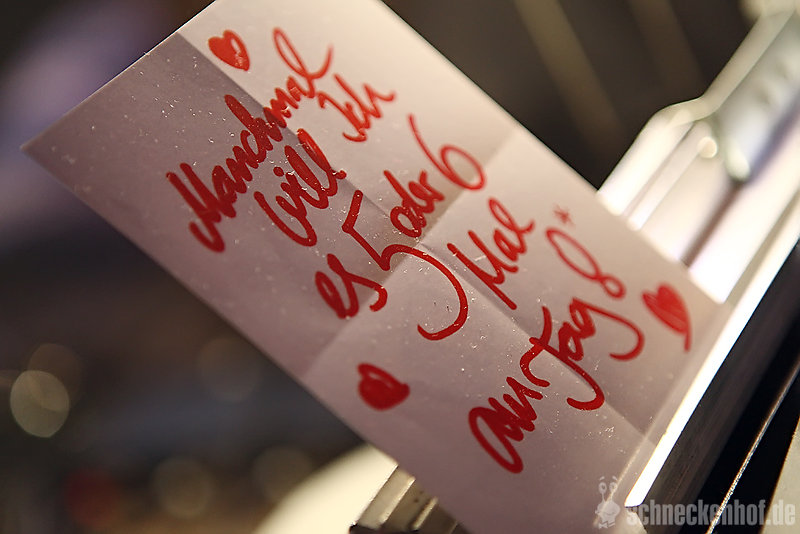 Manchmal
will Ich
es 5 oder 6
Mal
am Tag*
schneckenhof.de